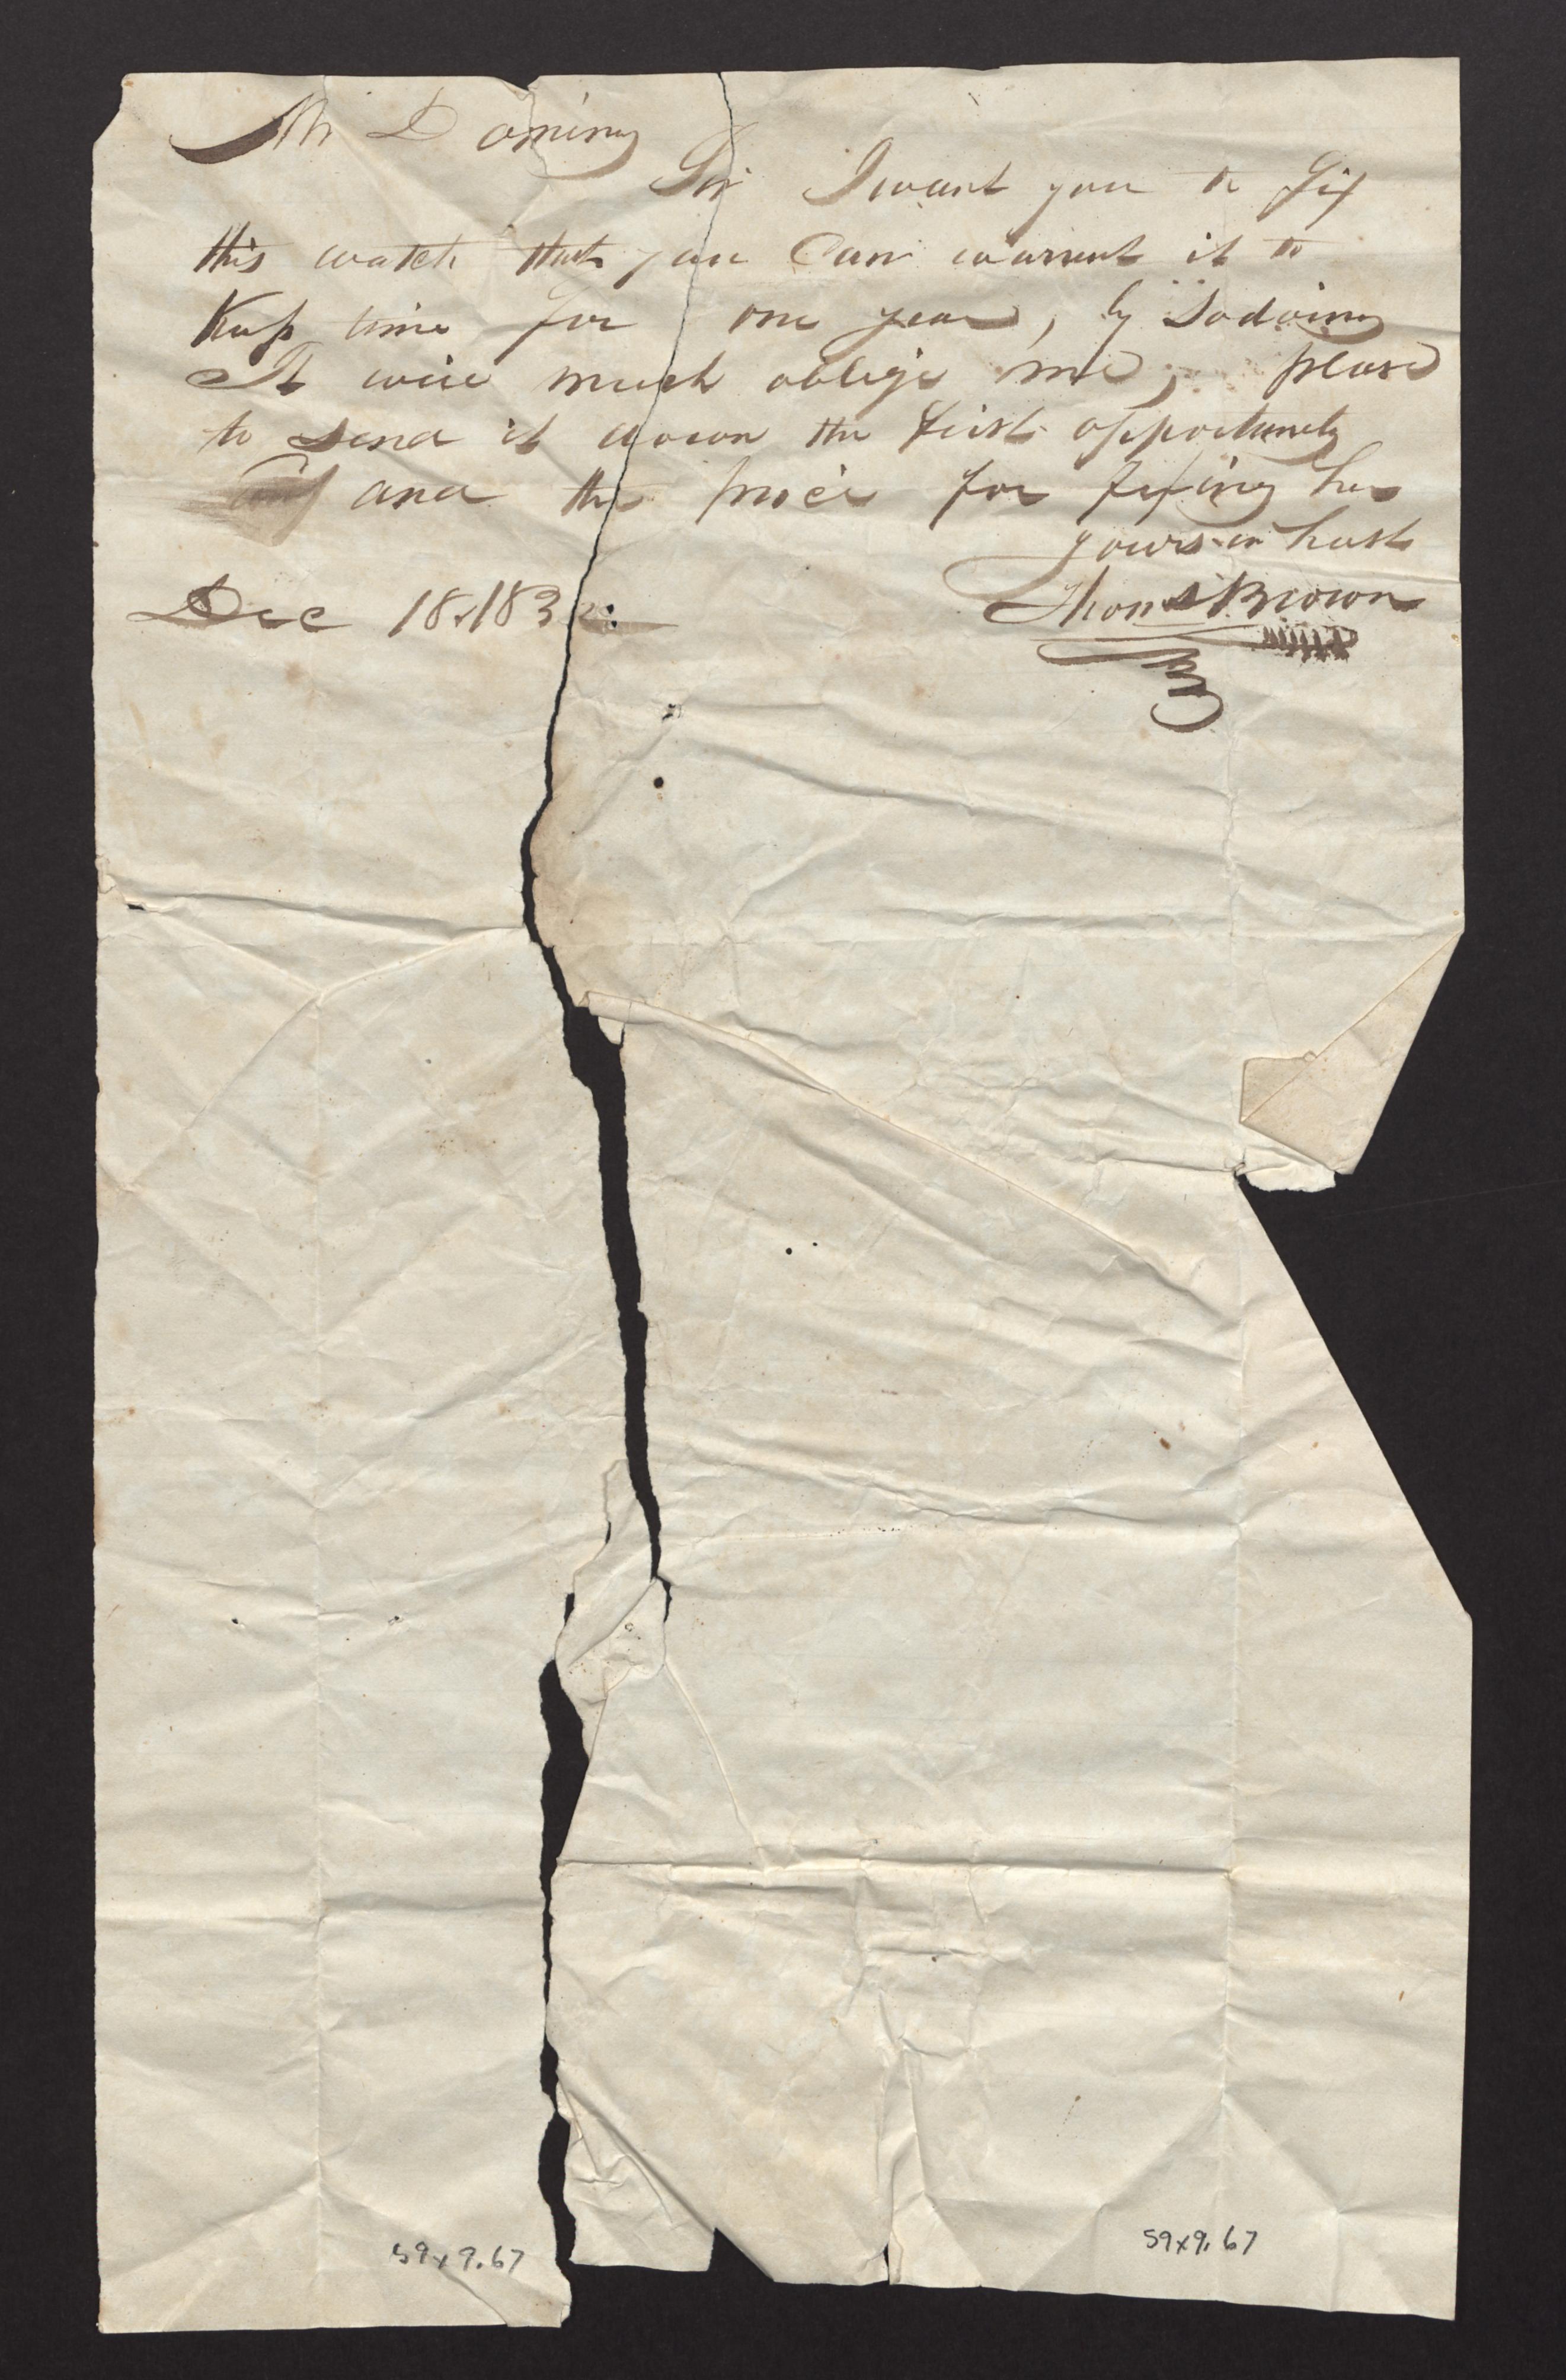 Mr Dominy
Sir I want you to fix
this watch that you Can warrent it to
Keep time for one year, by Sodoing
It will much oblige me, please
to Send it down the first oppertunity
and the price for fixing her
yours in hast
Dec 18.183
Thoms Brown
59x9.67
59x9.67